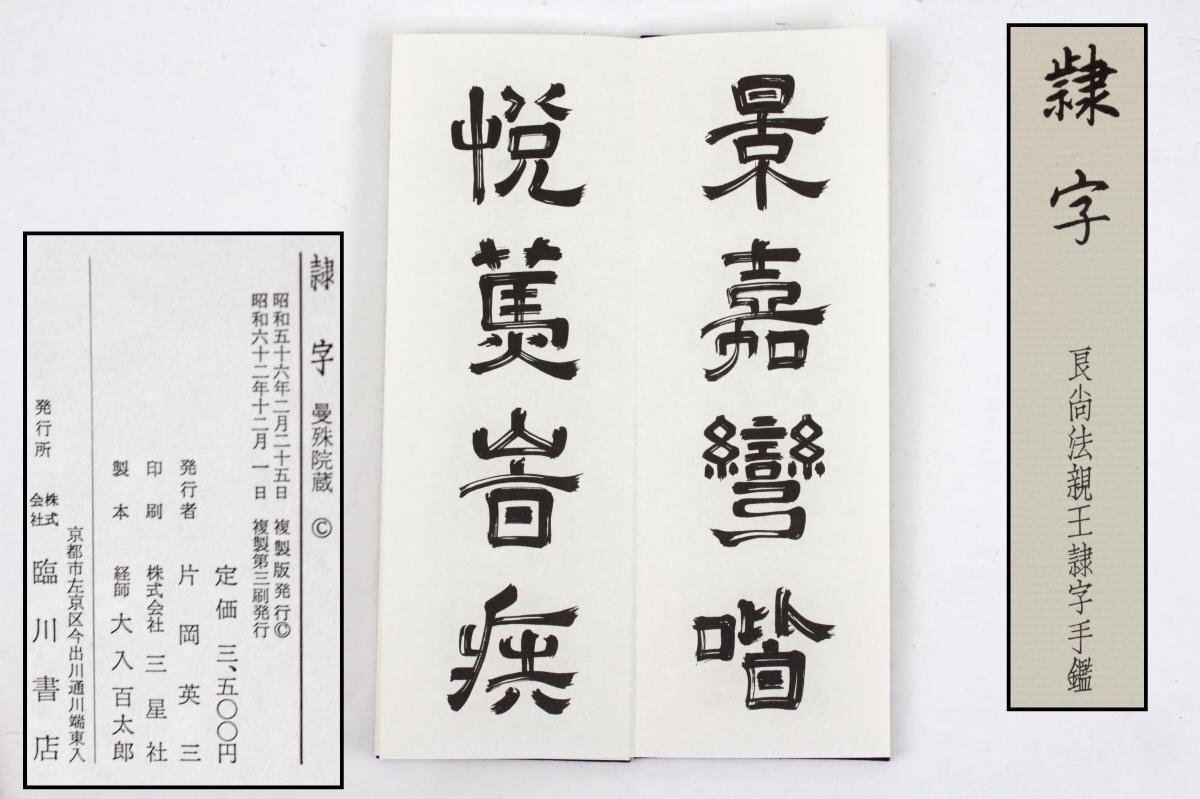 隷字
良尚法親王隷字手鑑
景嘉彎喈
隷字 曼殊院蔵 ©
昭和五十六年二月二十五日 複製版発行©
昭和六十二年十二月 一 日 複製第三刷発行
定価 三、五〇〇円
発行者 片岡英三
印刷 株式会社 三星社
製本 経師 大入百太郎
京都市左京区今出川通川端東入
発行所 株式会社 臨川書店